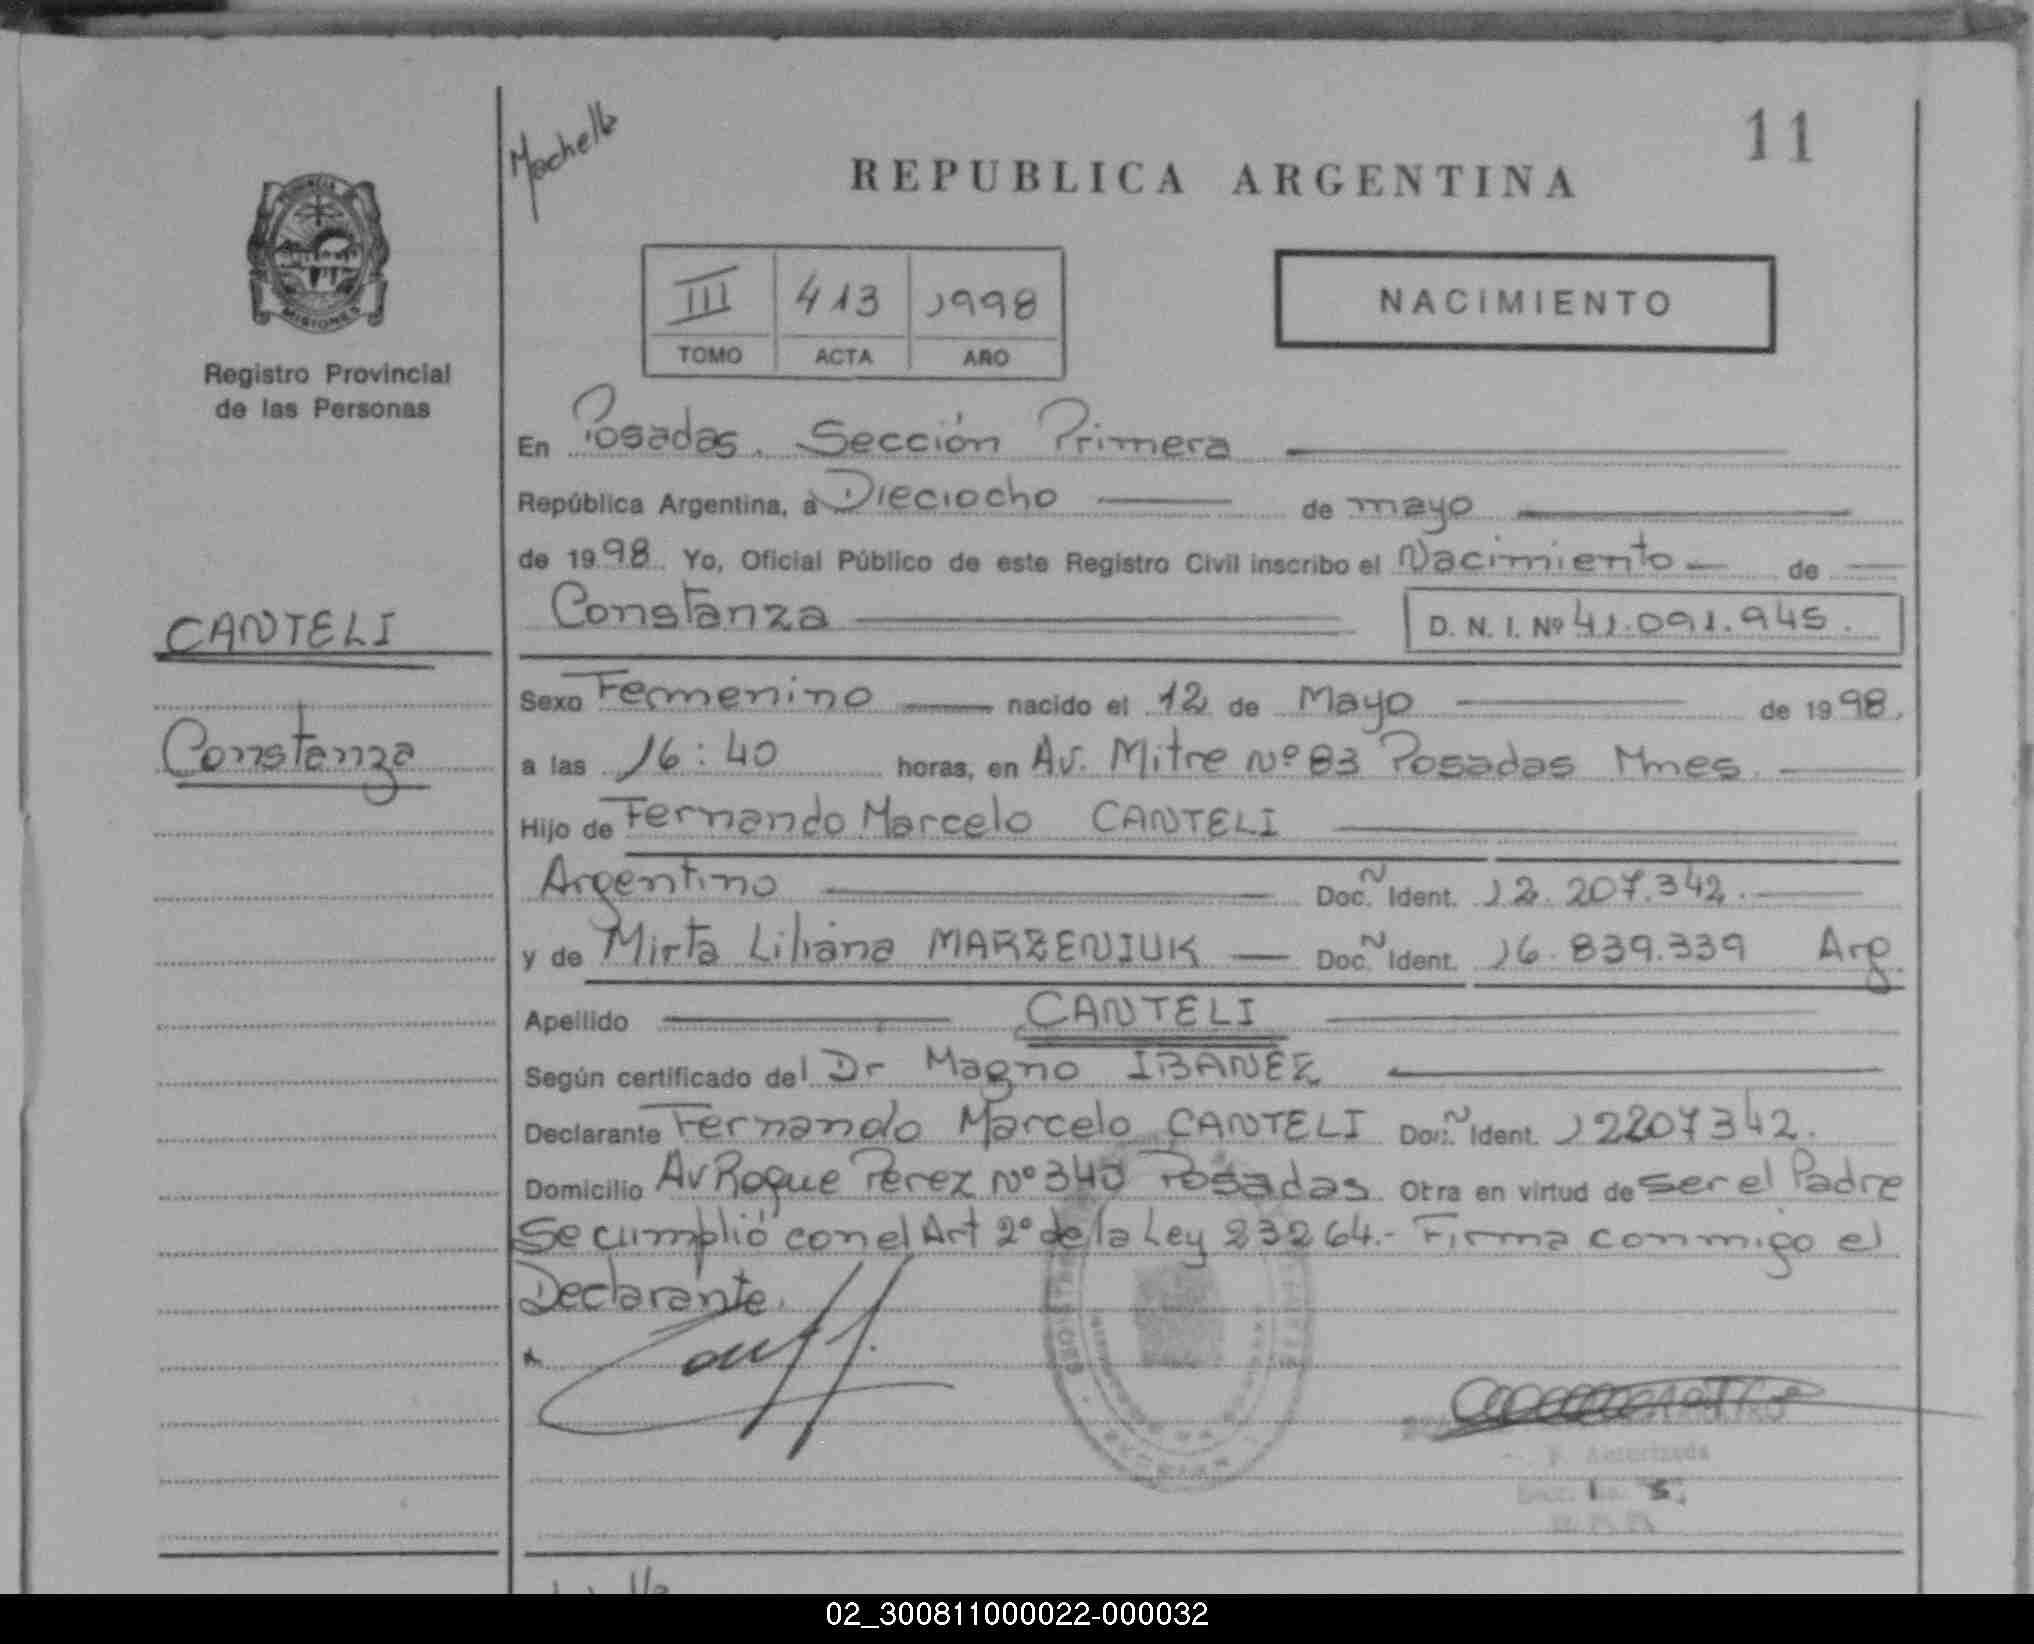 11
REPUBLICA ARGENTINA
III 413 1998
TOMO ACTA AÑO
NACIMIENTO
MISIONES
Registro Provincial
de las Personas
En Posadas. Sección Primera
República Argentina, a Dieciocho de mayo
de 1998 Yo, Oficial Público de este Registro Civil inscribo el Nacimiento de
Constanza D. N. I. Nº 41.091.945.
CANTELI
Constanza
Sexo Femenino nacido el 12 de Mayo de 1998.
a las 16:40 horas, en Av. Mitre Nº 83 Posadas Mnes.
Hijo de Fernando Marcelo CANTELI
Argentino Doc. Ident. 12.207.342.
y de Mirta Liliana MARZENIUK Doc. Ident. 16.839.339 Arg.
Apellido CANTELI
Según certificado del Dr Magno IBAÑEZ
Declarante Fernando Marcelo CANTELI Doc. Ident. 12207342.
Domicilio Av Roque Perez Nº 343 Posadas Otra en virtud de ser el Padre
Se cumplió con el Art 2º de la Ley 23264.- Firma conmigo el
Declarante.
02_300811000022-000032